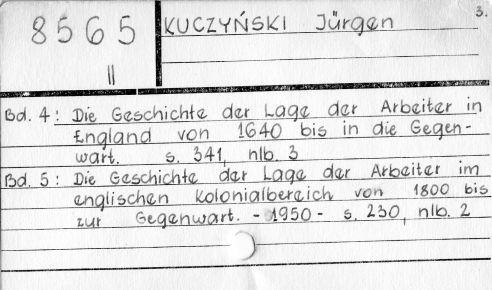 8565
II
KUCZYŃSKI Jürgen
3.
Bd. 4: Die Geschichte der Lage der Arbeiter in
England von 1640 bis in die Gegen-
wart. s. 341, nlb. 3
Bd. 5: Die Geschichte der Lage der Arbeiter im
englischen Kolonialbereich von 1800 bis
zur Gegenwart. - 1950 - s. 230, nlb. 2